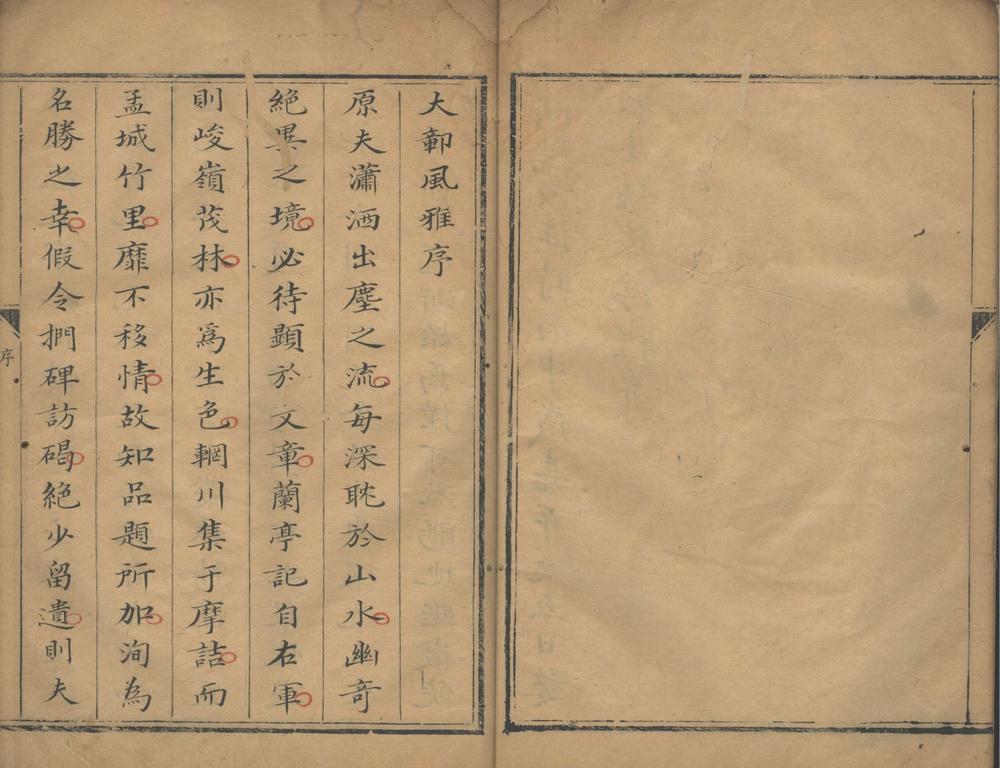 大鄣風雅序
原夫瀟洒出塵之流每深耽於山水幽奇
絶異之境必待顯於文章蘭亭記自右軍
則峻嶺茂林亦為生色輞川集于摩詰而
孟城竹里靡不移情故知品題所加洵為
名勝之幸假令捫碑訪碣絶少留遺則夫
序